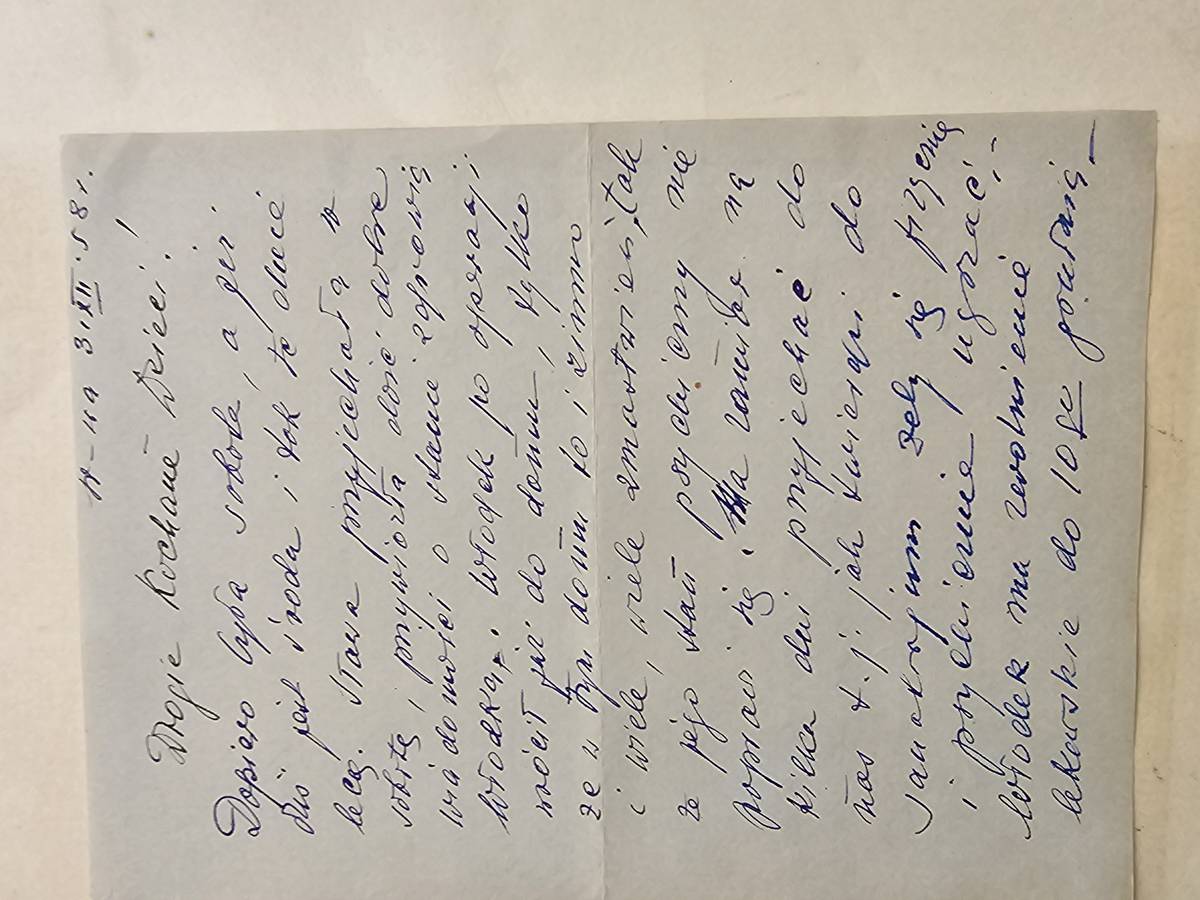 W-wa 3.XII.58 r.
Drogie Kochane Dzieci!
Dopiero była sobota, a już
dziś jest środa i tak te dnie
lecą. Stasia przyjechała w
sobotę, przywiozła dość dobre
wiadomości o stanie zdrowia
Włodka. Włodek po operacji
wrócił już do domu, tylko
że w tym domu to i zimno
i wiele, wiele zmartwień, tak
że jego stan psychiczny nie
poprawi się. Ma zamiar na
kilka dni przyjechać do
nas t.j. jak twierdzi do
sanatorjum żeby się fizycznie
i psychicznie ugrzać.-
Włodek ma zwolnienie
lekarskie do 10 grudnia